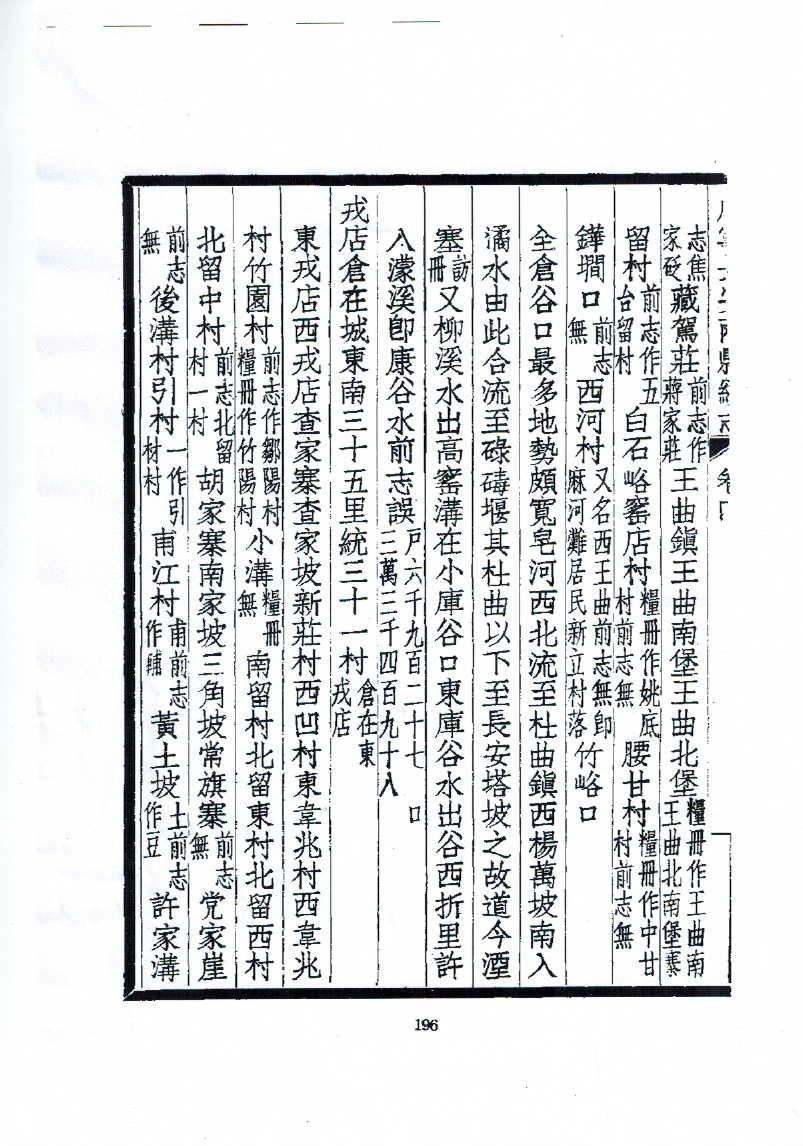 縣續志 卷
志焦家砭藏駕莊前志作蔣家莊王曲鎮王曲南堡王曲北堡糧冊作王曲南王曲北南堡寨
留村前志作五台留村白石峪窰店村糧冊作姚底村前志無腰甘村糧冊作中甘村前志無
鏵墹口前志無西河村又名西王曲前志無卽麻河灘居民新立村落竹峪口
全倉谷口最多地勢頗寬皂河西北流至杜曲鎮西楊萬坡南入
潏水由此合流至碌碡堰其杜曲以下至長安塔坡之故道今湮
塞訪冊又柳溪水出高窰溝在小庫谷口東庫谷水出谷西折里許
入濛溪卽康谷水前志誤戶六千九百二十七口三萬三千四百九十八
戎店倉在城東南三十五里統三十一村倉在東戎店
東戎店西戎店查家寨查家坡新莊村西凹村東韋兆村西韋兆
村竹園村前志作鄒陽村糧冊作竹陽村小溝糧冊無南留村北留東村北留西村
北留中村前志北留村一村胡家寨南家坡三角坡常旗寨前志無党家崖
前志無後溝村引村一作引材村甫江村甫前志作輔黃土坡土前志作豆許家溝
196